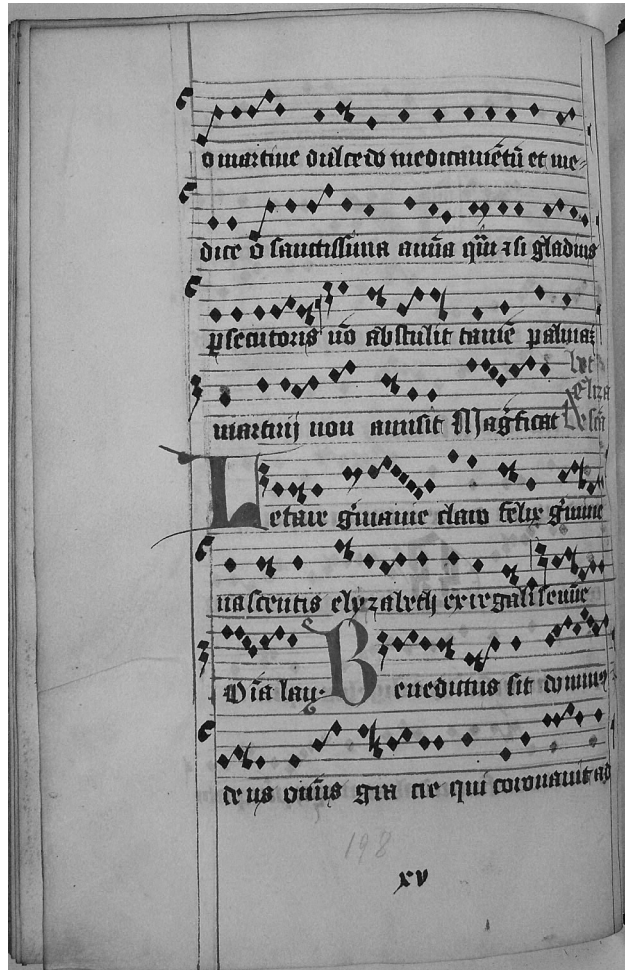 o martine dulcedo medicamētū et me-
dice o sanctissima aīa quā etsi gladius
psecutoris nō abstulit tamē palmaꝫ
martirij non amisit Magficat
Letare gmanie claro felix gmine
nascentis elyzabeth ex regali semīe
Benedictus sit domin9
de us oīnis gra cie qui coronauit ad
198
xv